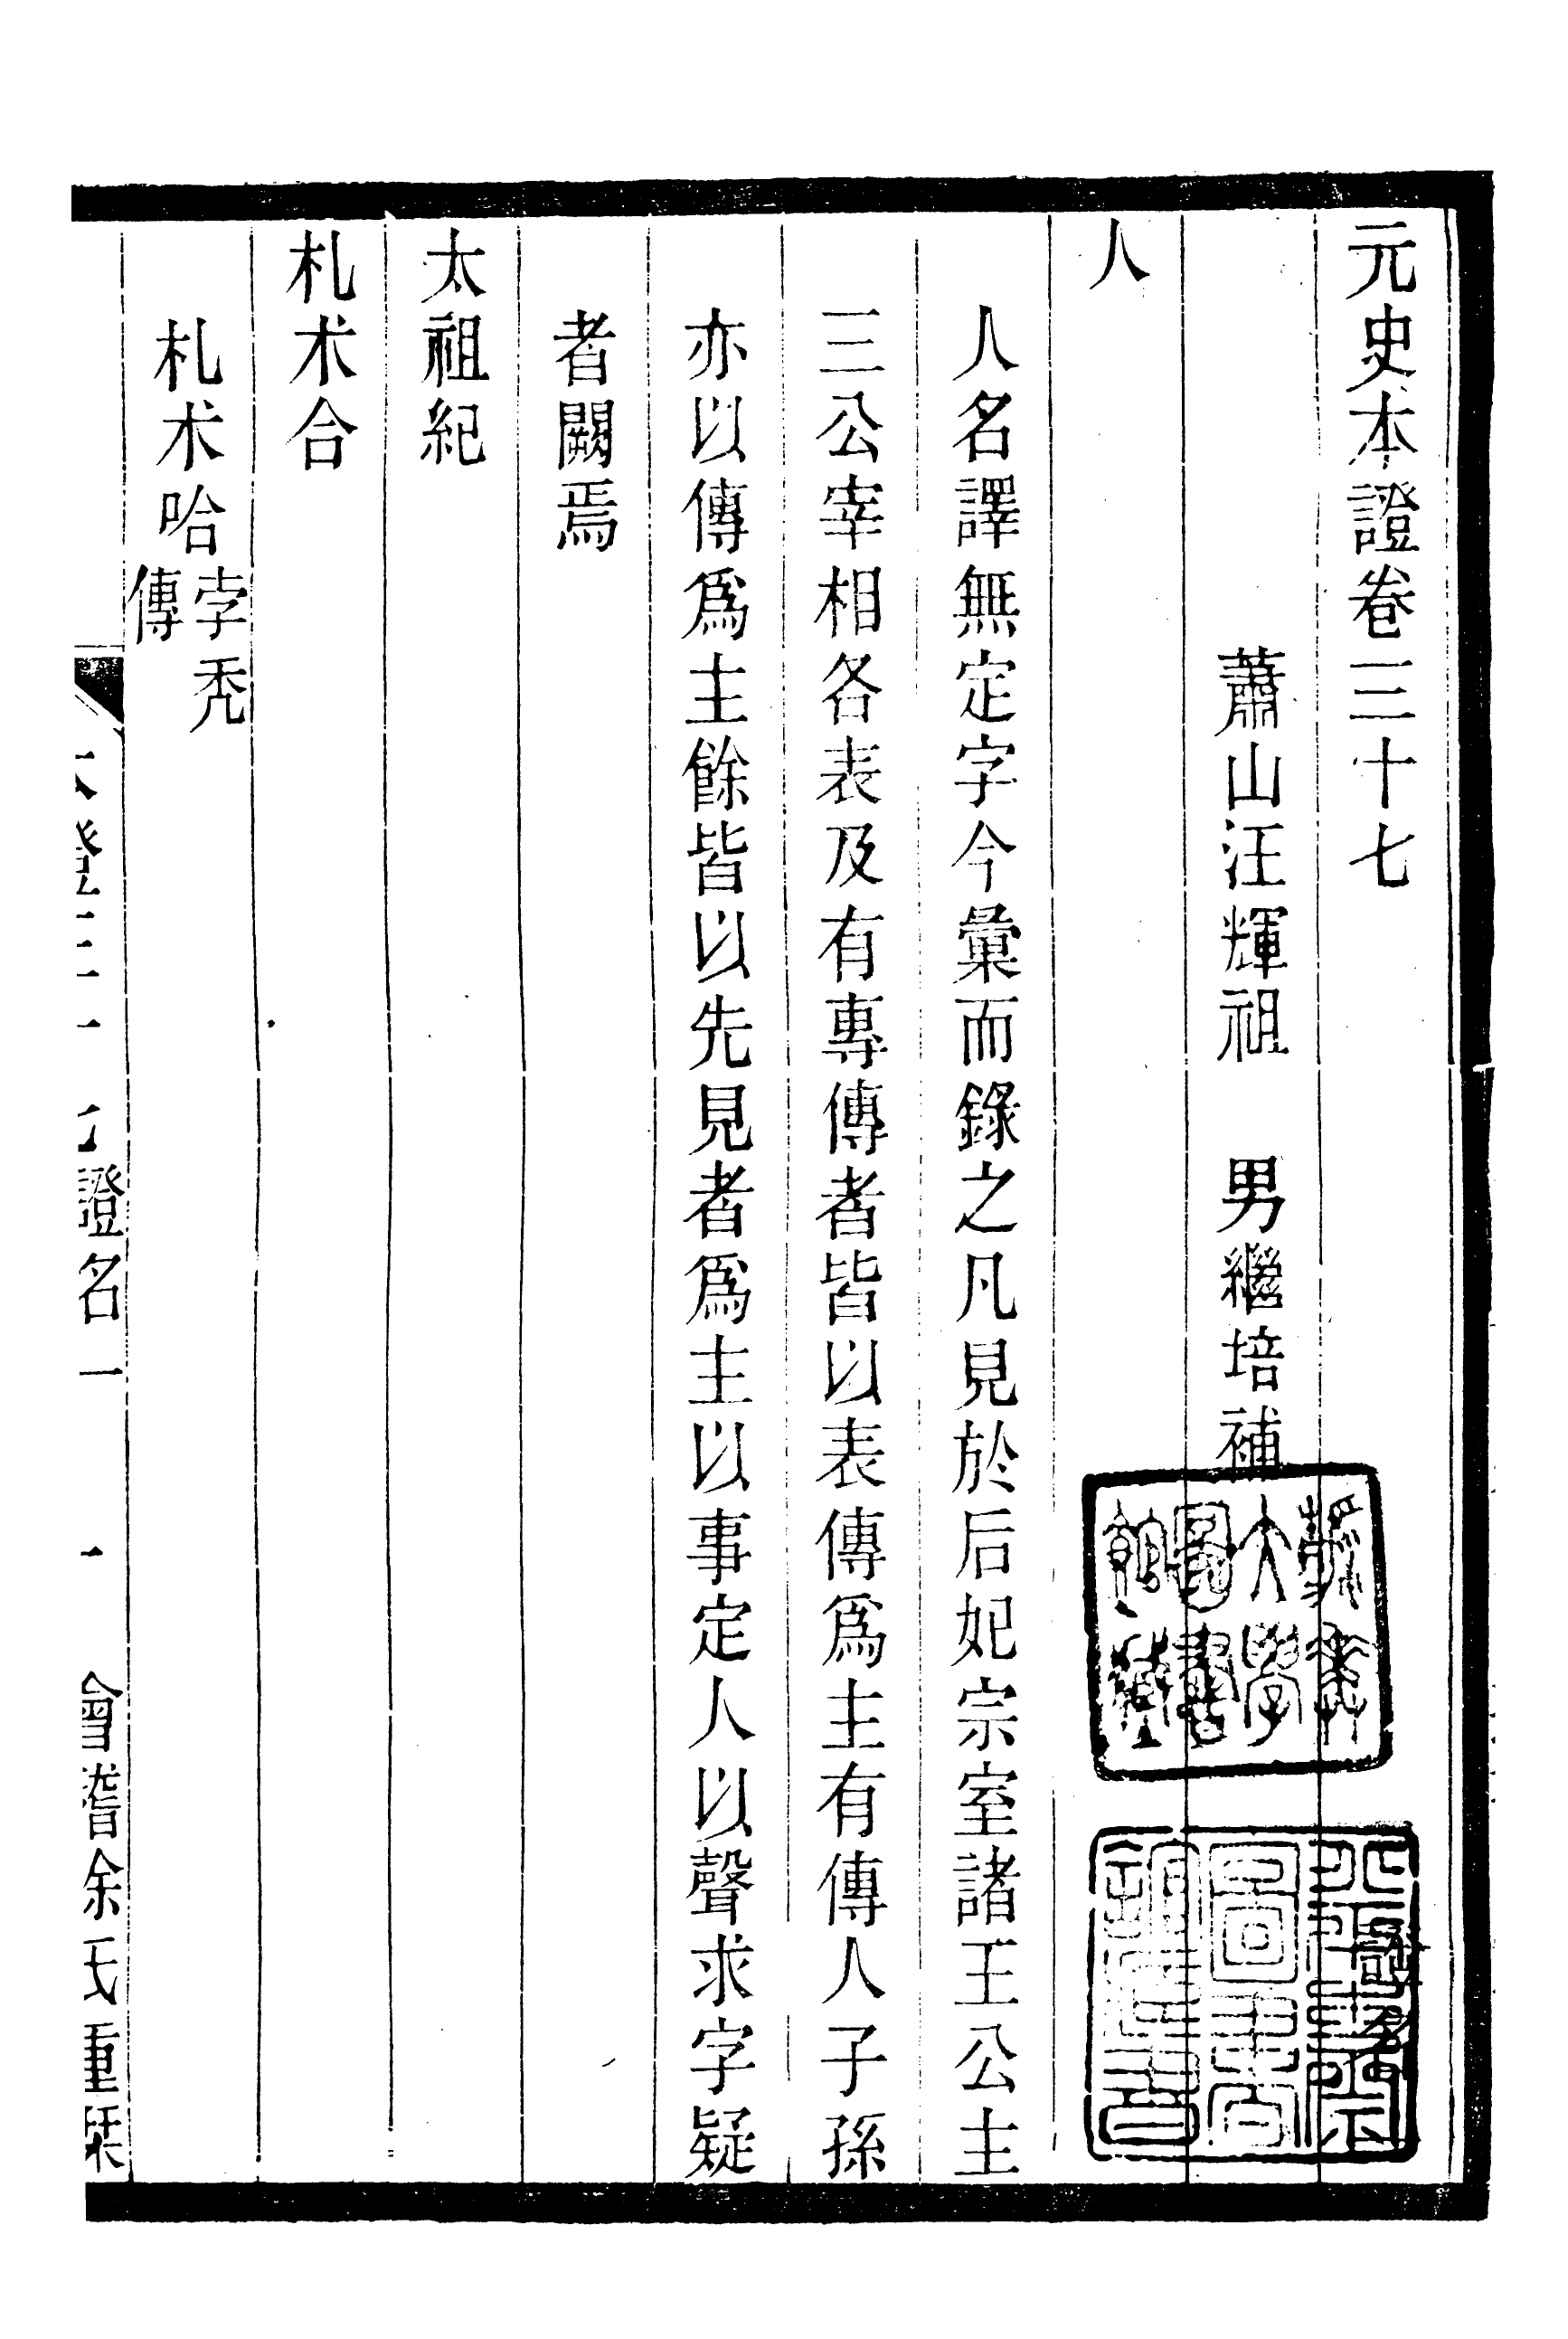 元史本證卷三十七
蕭山汪輝祖　男繼培補
人
人名譯無定字今彙而錄之凡見於后妃宗室諸王公主
三公宰相各表及有專傳者皆以表傳爲主有傳人子孫
亦以傳爲主餘皆以先見者爲主以事定人以聲求字疑
者闕焉
太祖紀
札术合
札术哈孛禿傳
證名一
會稽徐氏重栞
大學圖書館藏